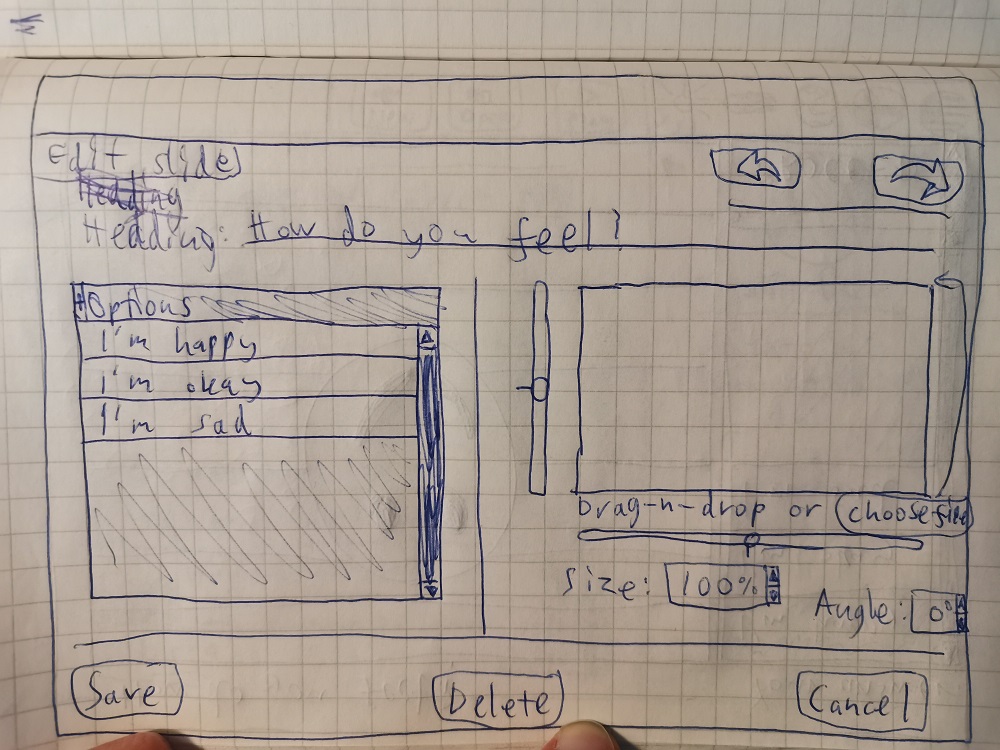 Edit slide
Heading
Heading: How do you feel?
Options
I'm happy
I'm okay
I'm sad
Drag-n-drop or choose file
Size: 100%
Angle: 0°
Save
Delete
Cancel